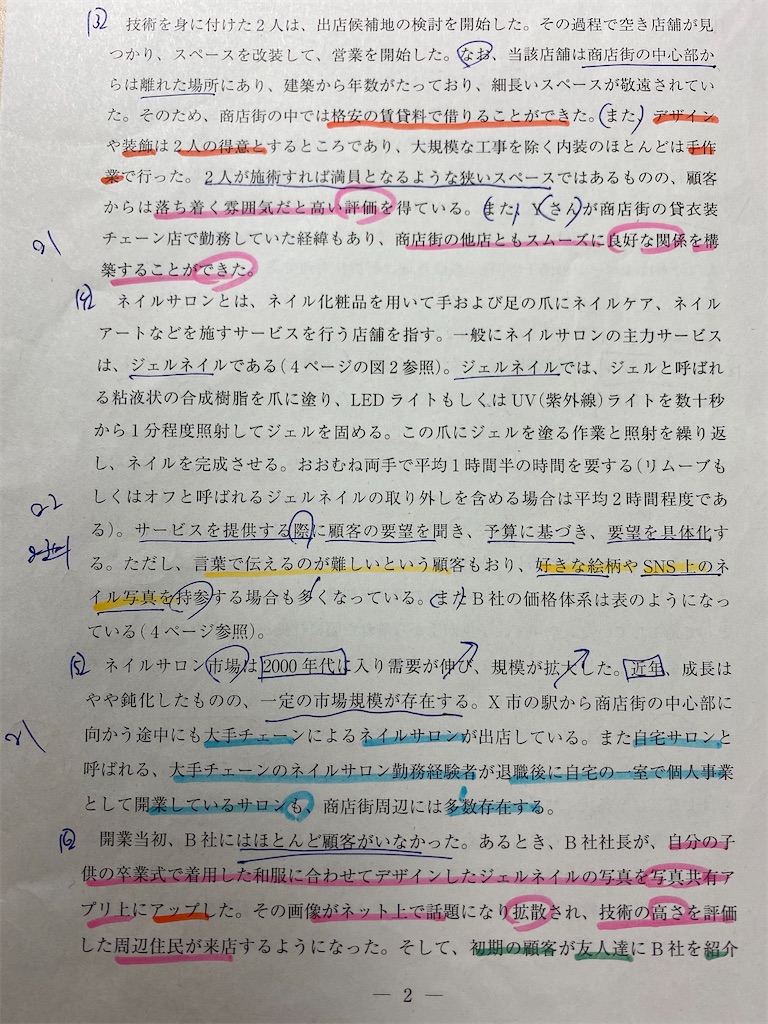 (3) 技術を身に付けた2人は、出店候補地の検討を開始した。その過程で空き店舗が見
つかり、スペースを改装して、営業を開始した。なお、当該店舗は商店街の中心部か
らは離れた場所にあり、建築から年数がたっており、細長いスペースが敬遠されてい
た。そのため、商店街の中では格安の賃貸料で借りることができた。また、デザイン
や装飾は2人の得意とするところであり、大規模な工事を除く内装のほとんどは手作
業で行った。2人が施術すれば満員となるような狭いスペースではあるものの、顧客
からは落ち着く雰囲気だと高い評価を得ている。また、Yさんが商店街の貸衣装
チェーン店で勤務していた経緯もあり、商店街の他店ともスムーズに良好な関係を構
築することができた。
(4) ネイルサロンとは、ネイル化粧品を用いて手および足の爪にネイルケア、ネイル
アートなどを施すサービスを行う店舗を指す。一般にネイルサロンの主力サービス
は、ジェルネイルである(4ページの図2参照)。ジェルネイルでは、ジェルと呼ばれ
る粘液状の合成樹脂を爪に塗り、LEDライトもしくはUV(紫外線)ライトを数十秒
から1分程度照射してジェルを固める。この爪にジェルを塗る作業と照射を繰り返
し、ネイルを完成させる。おおむね両手で平均1時間半の時間を要する(リムーブも
しくはオフと呼ばれるジェルネイルの取り外しを含める場合は平均2時間程度であ
る)。サービスを提供する際に顧客の要望を聞き、予算に基づき、要望を具体化す
る。ただし、言葉で伝えるのが難しいという顧客もおり、好きな絵柄やSNS上のネ
イル写真を持参する場合も多くなっている。またB社の価格体系は表のようになっ
ている(4ページ参照)。
(5) ネイルサロン市場は2000年代に入り需要が伸び、規模が拡大した。近年、成長は
やや鈍化したものの、一定の市場規模が存在する。X市の駅から商店街の中心部に
向かう途中にも大手チェーンによるネイルサロンが出店している。また自宅サロンと
呼ばれる、大手チェーンのネイルサロン勤務経験者が退職後に自宅の一室で個人事業
として開業しているサロンも、商店街周辺には多数存在する。
(6) 開業当初、B社にはほとんど顧客がいなかった。あるとき、B社社長が、自分の子
供の卒業式で着用した和服に合わせてデザインしたジェルネイルの写真を写真共有ア
プリ上にアップした。その画像がネット上で話題になり拡散され、技術の高さを評価
した周辺住民が来店するようになった。そして、初期の顧客が友人達にB社を紹介
— 2 —